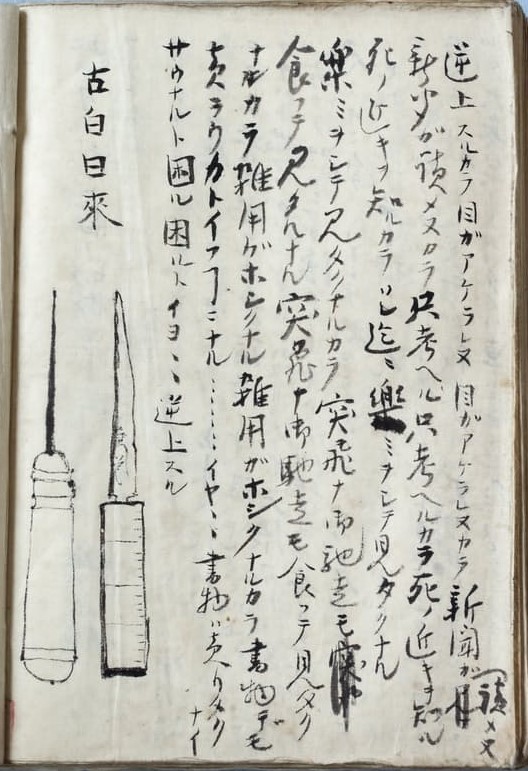 逆上スルカラ目ガアケラレヌ目ガアケラレヌカラ新聞ガ読メヌ
新聞ガ読メヌカラ只考ヘル只考ヘルカラ死ノ近キヲ知ル
死ノ近キヲ知ルカラソレ迄ニ楽ミヲシテ見タクナル
楽ミヲシテ見タクナルカラ突飛ナ御馳走モ
食ッテ見タクナル突飛ナ御馳走モ食ッテ見タク
ナルカラ雑用ガホシクナル雑用ガホシクナルカラ書物デモ
売ラウカトイフコトニナル……イヤヽ書物ハ売リタクナイ
サウナルト困ル困ルトイヨヽヽ逆上スル
古白曰来